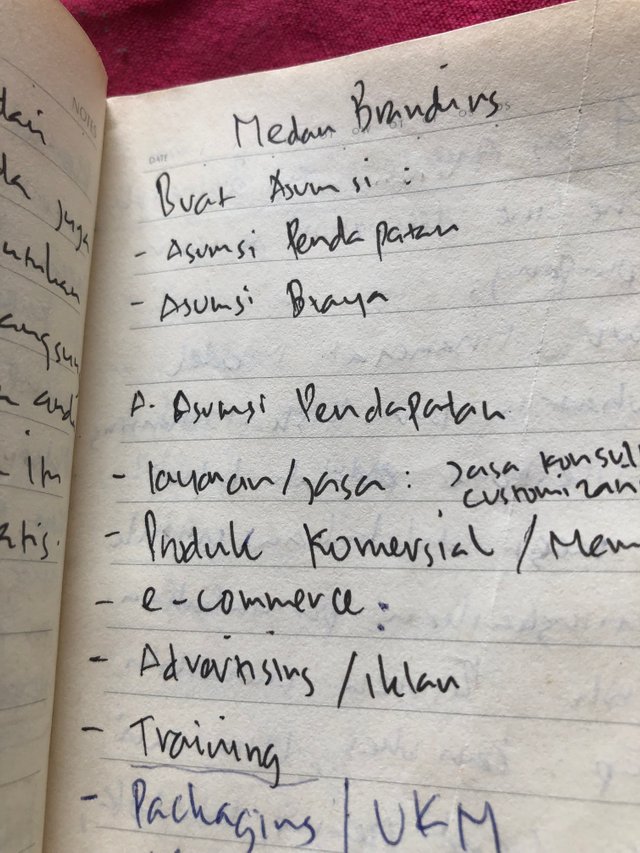 NOTES
juga
Medan Branding
DATE
Buat Asumsi :
- Asumsi Pendapatan
- Asumsi Biaya
A. Asumsi Pendapatan
- layanan/jasa : jasa konsul
customizan
- Produk Komersial / Mem
- e-commerce :
- Advertising / iklan
- Training
- Packaging / UKM